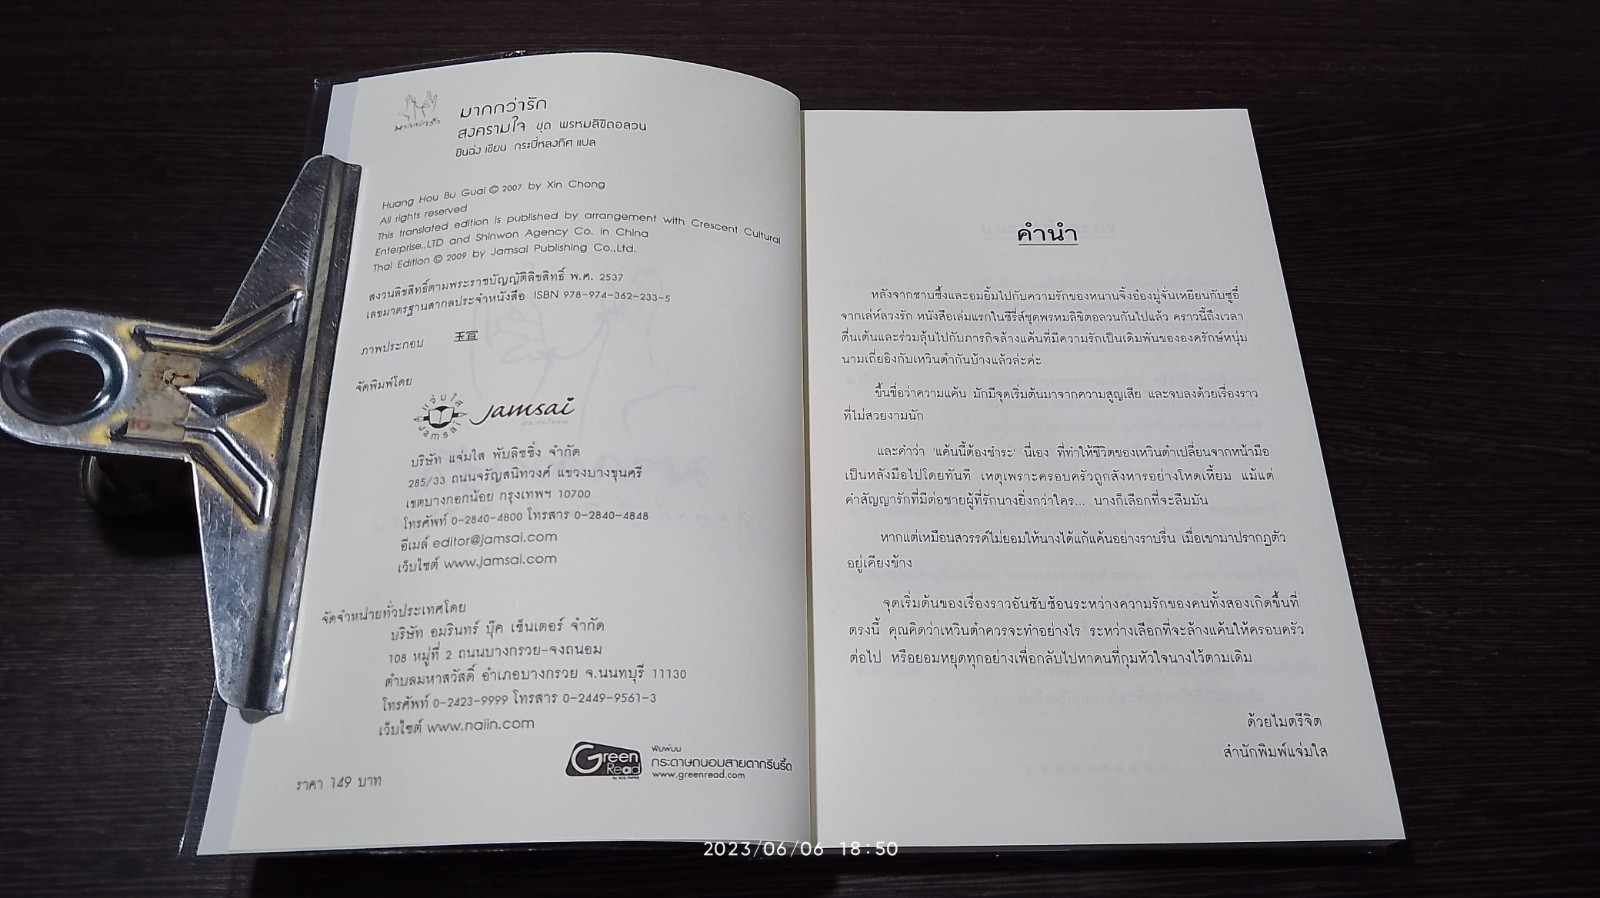 มากกว่ารัก
มากกว่ารัก
สงครามใจ ชุด พรหมลิขิตอลวน
ซินฉ่ง เขียน กระบี่หลงทิศ แปล
Huang Hou Bu Guai © 2007 by Xin Chong
All rights reserved
This translated edition is published by arrangement with Crescent Cultural
Enterprise.,LTD and Shinwon Agency Co. in China
Thai Edition © 2009 by Jamsai Publishing Co.,Ltd.
สงวนลิขสิทธิ์ตามพระราชบัญญัติลิขสิทธิ์ พ.ศ. 2537
เลขมาตรฐานสากลประจำหนังสือ ISBN 978-974-362-233-5
ภาพประกอบ 玉宣
จัดพิมพ์โดย
แจ่มใส
Jamsai
Jamsai
บริษัท แจ่มใส พับลิชชิ่ง จำกัด
285/33 ถนนจรัญสนิทวงศ์ แขวงบางขุนศรี
เขตบางกอกน้อย กรุงเทพฯ 10700
โทรศัพท์ 0-2840-4800 โทรสาร 0-2840-4848
อีเมล์ editor@jamsai.com
เว็บไซต์ www.jamsai.com
จัดจำหน่ายทั่วประเทศโดย
บริษัท อมรินทร์ บุ๊ค เซ็นเตอร์ จำกัด
108 หมู่ที่ 2 ถนนบางกรวย-จงถนอม
ตำบลมหาสวัสดิ์ อำเภอบางกรวย จ.นนทบุรี 11130
โทรศัพท์ 0-2423-9999 โทรสาร 0-2449-9561-3
เว็บไซต์ www.naiin.com
Green
Read
พิมพ์บน
กระดาษถนอมสายตากรีนรี้ด
www.greenread.com
ราคา 149 บาท
คำนำ
หลังจากซาบซึ้งและอมยิ้มไปกับความรักของหนานจิ้งอ๋องมู่จั่นเหยียนกับซูอี่
จากเล่ห์ลวงรัก หนังสือเล่มแรกในซีรี่ส์ชุดพรหมลิขิตอลวนกันไปแล้ว คราวนี้ถึงเวลา
ตื่นเต้นและร่วมลุ้นไปกับภารกิจล้างแค้นที่มีความรักเป็นเดิมพันขององครักษ์หนุ่ม
นามเถี่ยอิงกับเหวินต๋ากันบ้างแล้วล่ะค่ะ
ขึ้นชื่อว่าความแค้น มักมีจุดเริ่มต้นมาจากความสูญเสีย และจบลงด้วยเรื่องราว
ที่ไม่สวยงามนัก
และคำว่า 'แค้นนี้ต้องชำระ' นี่เอง ที่ทำให้ชีวิตของเหวินต๋าเปลี่ยนจากหน้ามือ
เป็นหลังมือไปโดยทันที เหตุเพราะครอบครัวถูกสังหารอย่างโหดเหี้ยม แม้แต่
คำสัญญารักที่มีต่อชายผู้ที่รักนางยิ่งกว่าใคร... นางก็เลือกที่จะลืมมัน
หากแต่เหมือนสวรรค์ไม่ยอมให้นางได้แก้แค้นอย่างราบรื่น เมื่อเขามาปรากฏตัว
อยู่เคียงข้าง
จุดเริ่มต้นของเรื่องราวอันซับซ้อนระหว่างความรักของคนทั้งสองเกิดขึ้นที่
ตรงนี้ คุณคิดว่าเหวินต๋าควรจะทำอย่างไร ระหว่างเลือกที่จะล้างแค้นให้ครอบครัว
ต่อไป หรือยอมหยุดทุกอย่างเพื่อกลับไปหาคนที่กุมหัวใจนางไว้ตามเดิม
ด้วยไมตรีจิต
สำนักพิมพ์แจ่มใส
2023/06/06 18:50